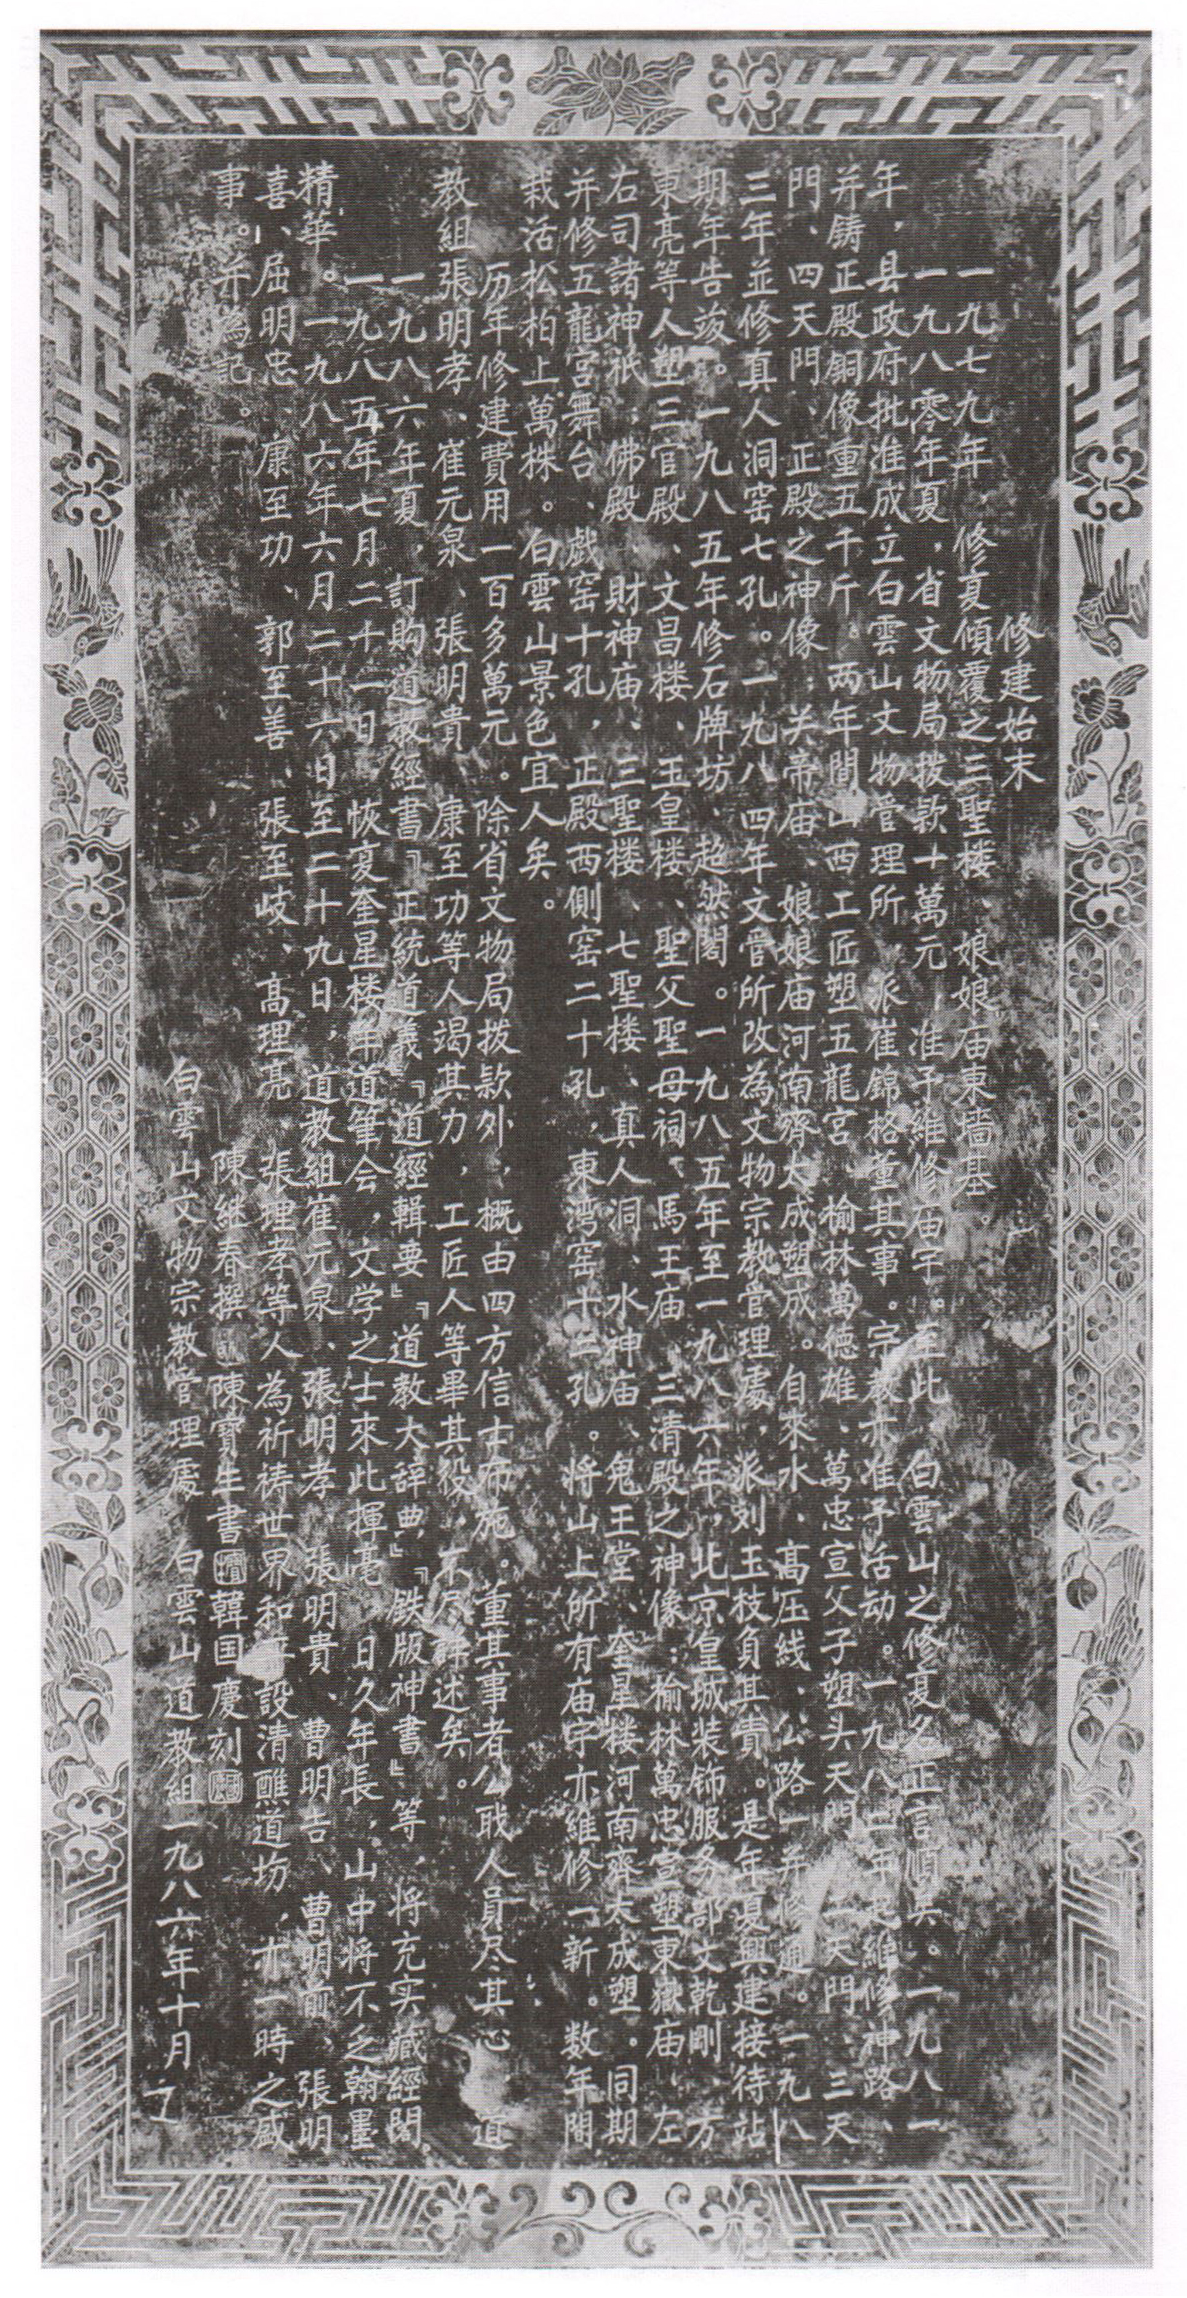 修建始末
一九七九年，修复傾覆之三聖楼、娘娘庙東墙基。
一九八零年夏，省文物局拨款十萬元，准予維修庙宇。至此，白雲山之修复名正言順矣。一九八一
年，县政府批准成立白雲山文物管理所，派崔錦格董其事。宗教亦准予活动。一九八二年
并鋳正殿銅像重五千斤。两年間山西工匠塑五龍宮、榆林萬徳雄、萬忠宣父子塑头天門、二天門、三天
門、四天門、正殿之神像；关帝庙、娘娘庙河南齊大成塑成。自来水、高压线、公路一并修通。一九八
三年並修真人洞窑七孔。一九八四年文管所改為文物宗教管理處，派刘玉枝負其責。是年夏興建接待站，
期年告竣。一九八五年修石牌坊、超然閣。一九八五年至一九八六年，北京皇城装饰服务部文乾剛、方
東亮等人塑三官殿、文昌楼、玉皇楼、聖父聖母祠、馬王庙、三清殿之神像；榆林萬忠宣塑東嶽庙、左
右司諸神祇、佛殿、財神庙、三聖楼、七聖楼、真人洞、水神庙、鬼王堂、奎星楼河南齊大成塑。同期
并修五龍宮舞台、戯窑十孔，正殿西側窑二十孔，東湾窑十二孔。将山上所有庙宇亦維修一新。数年間
栽活松柏上萬株。白雲山景色宜人矣。
历年修建費用一百多萬元。除省文物局拨款外，概由四方信士布施。董其事者公职人員尽其心，道
教組張明孝、崔元泉、張明貴、康至功等人竭其力，工匠人等畢其役，不尽詳述矣。
一九八六年夏，訂购道教經書『正統道義』『道經輯要』『道教大辞典』『鉄版神書』等，将充实藏經閣。
一九八五年七月二十一日，恢复奎星楼年道筆会，文学之士來此揮毫，日久年長，山中将不乏翰墨
精華。一九八六年六月二十六日至二十九日，道教組崔元泉、張明孝、張明貴、曹明吉、曹明前、張明
喜、屈明忠、康至功、郭至善、張至岐、高理亮、張理孝等人為祈禱世界和平設清醮道坊，尤一時之盛
事。并為記。
陳継春撰 陳寶生書 韓国慶刻
白雲山文物宗教管理處 白雲山道教組 一九八六年十月 立